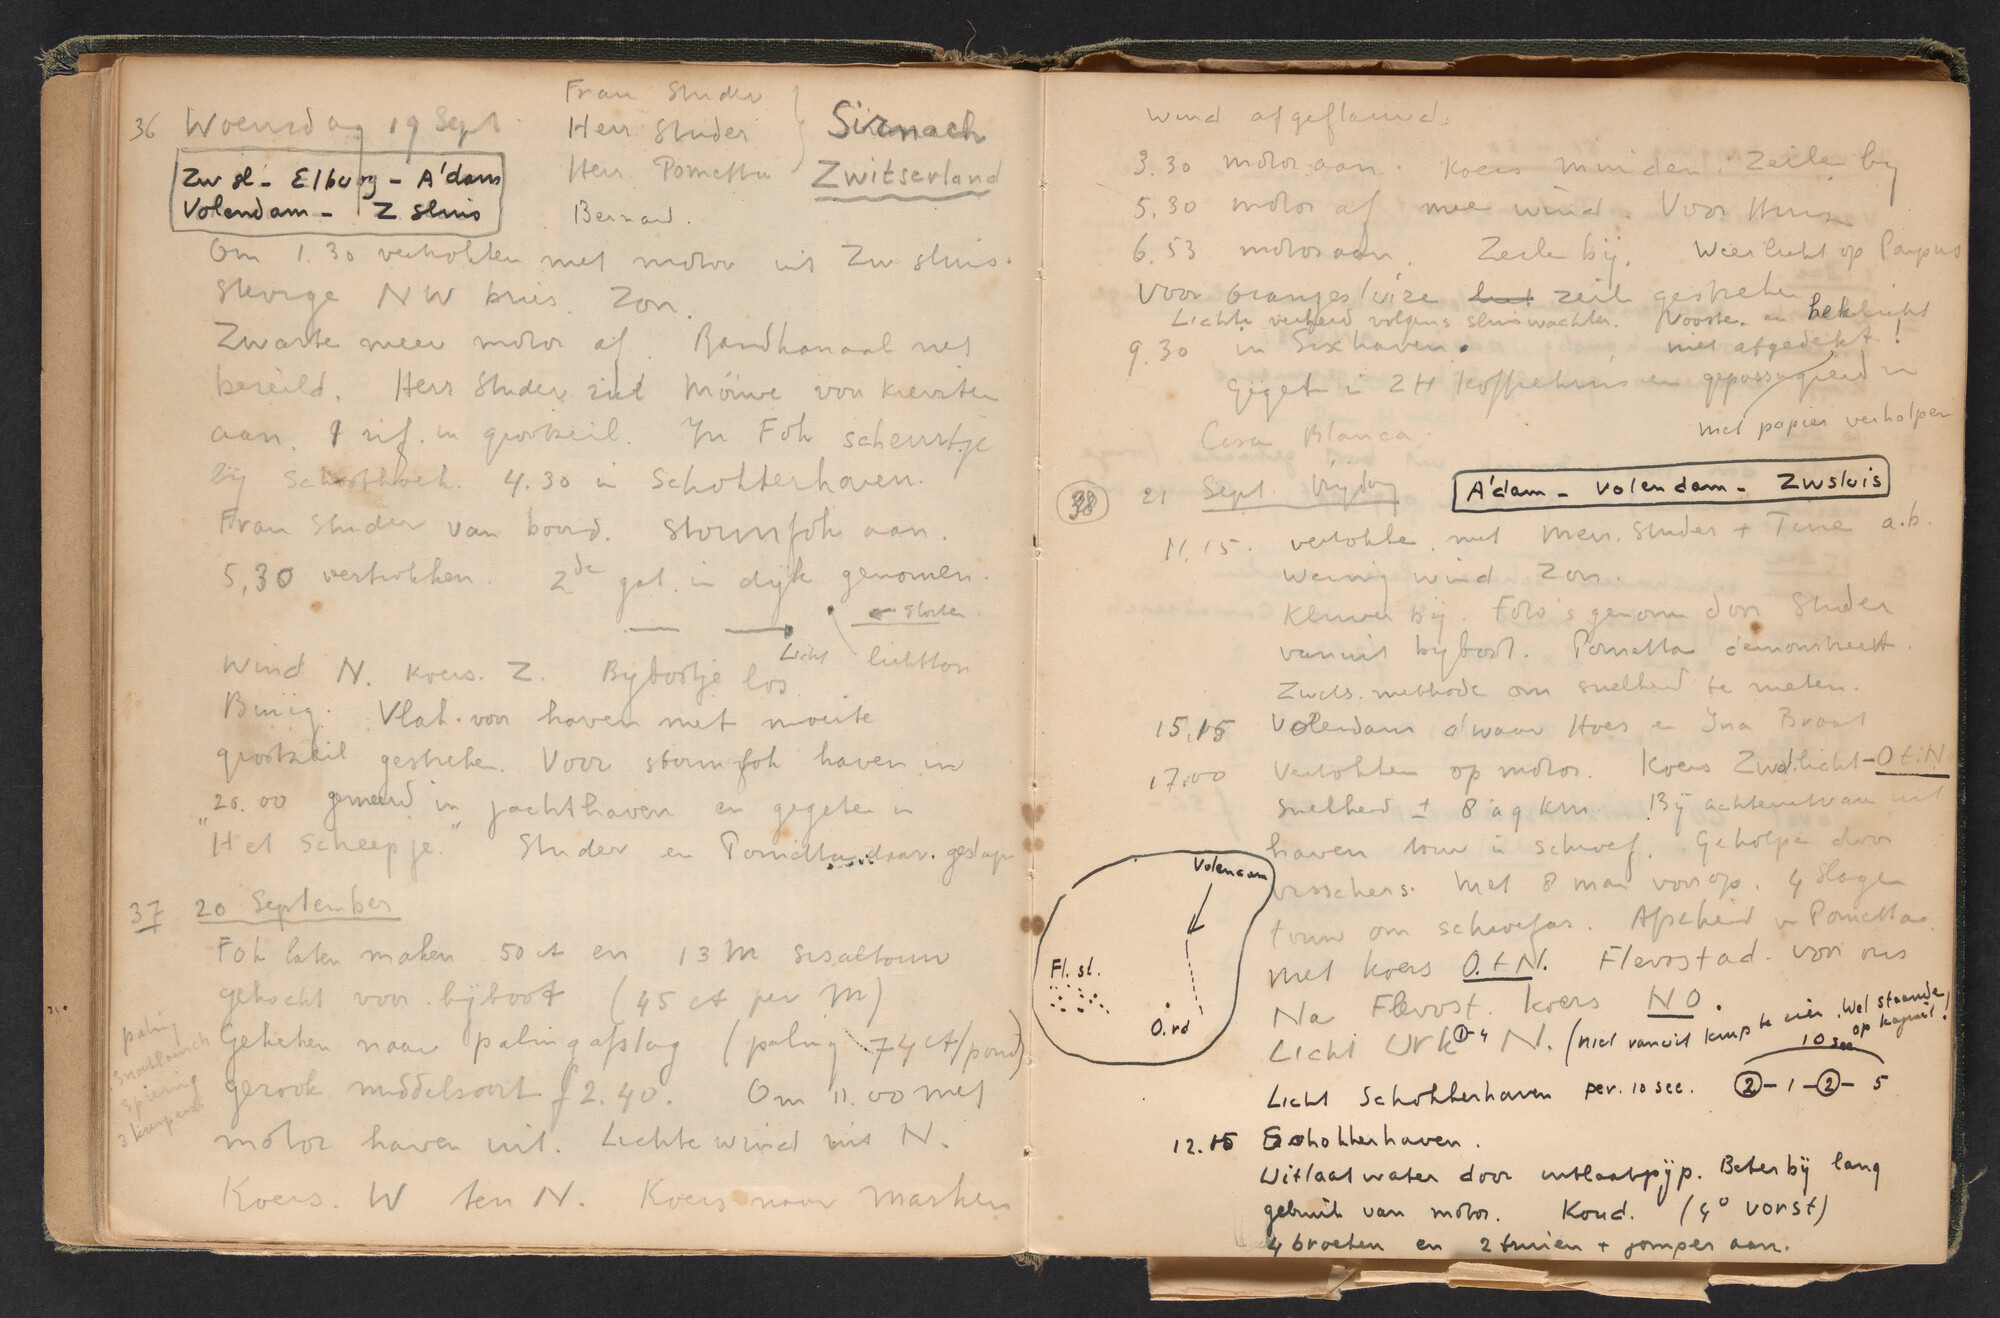 36 Woensdag 19 Sept.
Frau Studer
Herr Studer
Herr Pometta
Bernard.
Sirnach
Zwitserland
Zw sl - Elburg - A'dam
Volendam - Z sluis
Om 1.30 vertrokken met motor uit Zw sluis.
Stevige NW bries. Zon.
Zwarte meer motor af. Randkanaal net
bezeild. Herr Studer ziet Möwe voor kieviten
aan. 1 rif in grootzeil. In Fok scheurtje
bij Schoothoek. 4.30 in Schokkerhaven.
Frau Studer van boord. Stormfok aan.
5.30 vertrokken. 2de gat in dijk genomen.
Licht
lichtton
Wind N. koers. Z. Bijbootje los
Buiig. Vlak voor haven met moeite
grootzeil gestreken. Voor stormfok haven in
20.00 gemeerd in jachthaven en gegeten in
"Het Scheepje." Studer en Pometta daar. geslap
37 20 September
Fok laten maken 50 ct en 13 M sisaltouw
gekocht voor bijboot (45 ct per M)
Gekeken naar palingafslag (paling 74 ct/pond)
paling
spiering
gerook middelsoort f 2.40. Om 11.00 met
motor haven uit. Lichte wind uit N.
Koers. W ten N. Koers naar Marken
wind afgeflauwd.
3.30 motor aan. Koers Muiden. Zeile bij
5.30 motor af mee wind. Voor Huis
6.53 motor aan. Zeile bij. Weerlicht op Pampus
Voor Oranjesluize zeil gestreken
Lichte verkeerd volgens sluiswachter. Rooste. en heklicht
niet afgedekt!
9.30 in Sixhaven.
Gegeten in 2H Koffiehuis en gepassagierd in
met papier verholpen
Casa Blanca.
38 21 Sept. Vrijdag
A'dam - Volendam - Zwsluis
11.15. vertrokke. met Mevr. Studer + Tine a.b.
Weinig wind Zon.
Kluiver bij. Foto's genom door Studer
vanuit bijboot. Pometta demonstreert.
Zwits. methode om snelheid te meten.
15.15 Volendam alwaar Hoes en Ina Braat
17.00 Vertrokken op motor. Koers Zuid.licht - O t.N
Snelheid ± 8 à 9 Km. Bij achteruitvaren uit
haven touw in schroef. Geholpe door
visschers. Met 8 man voorop. 4 Slagen
touw om schroefas. Afscheid v Pometta
Met koers O.t N. Flevostad voor ons
Na Flevost. koers NO.
Volendam
Fl. st.
O.rd
Licht Urk 1-4 N. (niet vanuit kuip te zien. Wel staande
op kajuit!
10 sec
Licht Schokkerhaven per. 10 sec. 2 - 1 - 2 - 5
12.15 Schokkerhaven.
Uitlaatwater door uitlaatpijp. Beter bij lang
gebruik van motor. Koud. (4° vorst)
4 broeken en 2 truien + jomper aan.